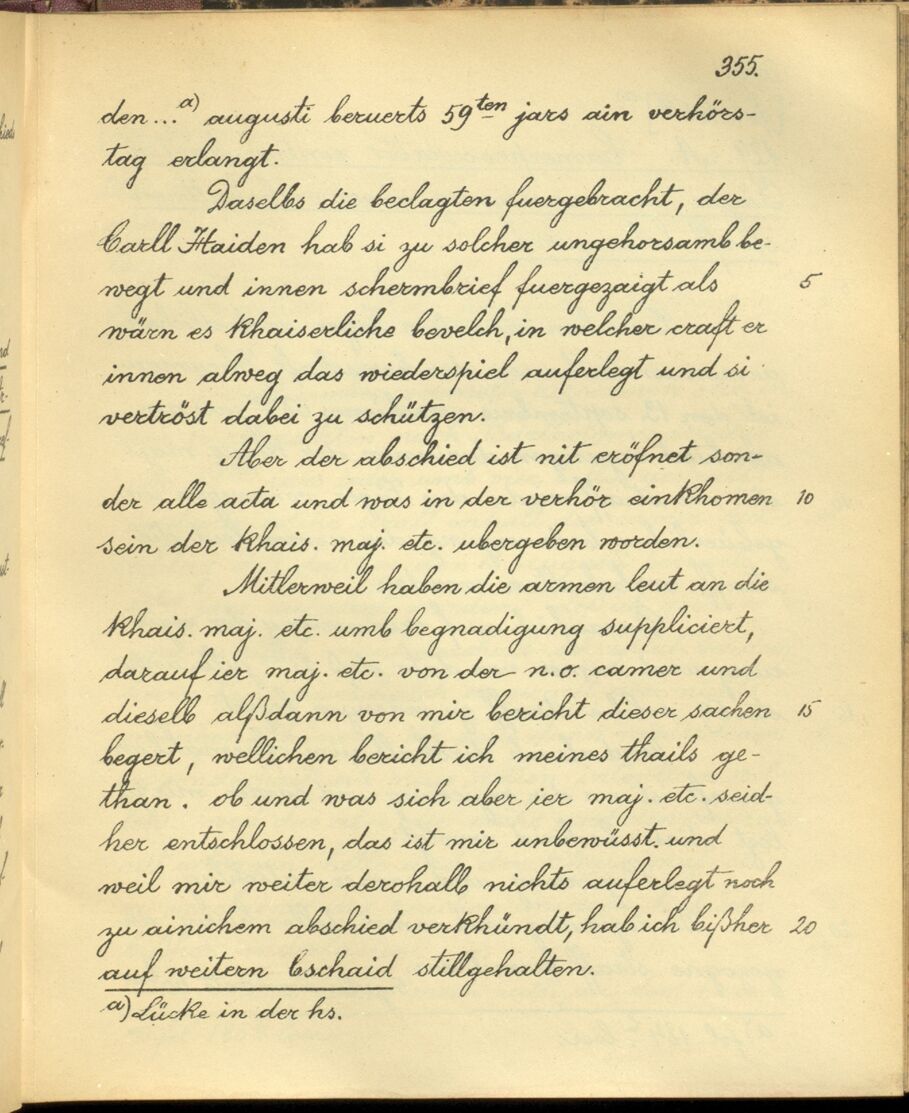 355.
den ... a) augusti beruerts 59ten jars ain verhörs-
tag erlangt.
Daselbs die beclagten fuergebracht, der
Carll Haiden hab si zu solcher ungehorsamb be-
wegt und innen schermbrief fuergezaigt als 5
wärn es khaiserliche bevelch, in welcher craft er
innen alweg das wiederspiel auferlegt und si
vertröst dabei zu schützen.
Aber der abschied ist nit eröfnet son-
der alle acta und was in der verhör einkhomen 10
sein der khais. maj. etc. ubergeben worden.
Mitlerweil haben die armen leut an die
khais. maj. etc. umb begnadigung suppliciert,
darauf ier maj. etc. von der n.o. camer und
dieselb alßdann von mir bericht dieser sachen 15
begert, wellichen bericht ich meines thails ge-
than. ob und was sich aber ier maj. etc. seid-
her entschlossen, das ist mir unbewüsst. und
weil mir weiter derohalb nichts auferlegt noch
zu ainichem abschied verkhündt, hab ich bißher 20
auf weitern bschaid stillgehalten.
a) Lücke in der hs.